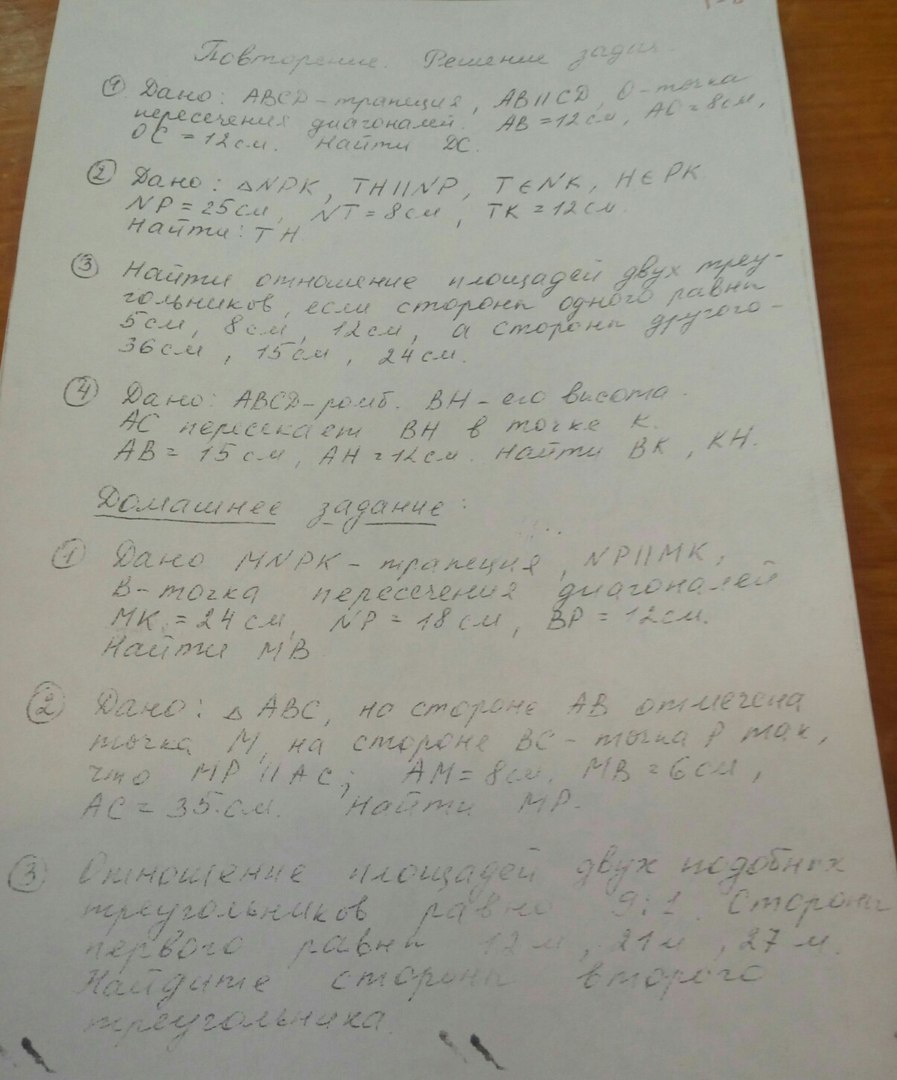 Повторение. Решение задач
① Дано: ABCD – трапеция, AB||CD, O – точка
пересечения диагоналей. AB = 12см, AO = 8см,
OC = 12см. Найти DC.
② Дано: △NPK, TH||NP, T∈NK, H∈PK
NP = 25см, NT = 8см, TK = 12см.
Найти: TH
③ Найти отношение площадей двух треу-
гольников, если стороны одного равны
5см, 8см, 12см, а стороны другого –
36см, 15см, 24см.
④ Дано: ABCD – ромб. BH – его высота.
AC пересекает BH в точке K.
AB = 15см, AH = 12см. Найти BK, KH.
Домашнее задание:
① Дано MNPK – трапеция, NP||MK,
B – точка пересечения диагоналей
MK = 24см, NP = 18см, BP = 12см.
Найти MB
② Дано: △ABC, на стороне AB отмечена
точка M, на стороне BC – точка P так,
что MP||AC; AM = 8см. MB = 6см,
AC = 35см. Найти MP.
③ Отношение площадей двух подобных
треугольников равно 9:1. Стороны
первого равны 12м, 21м, 27м.
Найдите стороны второго
треугольника.